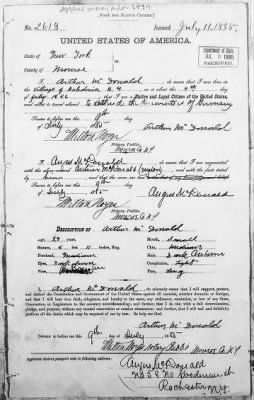 [FORM FOR NATIVE CITIZEN.]
No. 2613 Issued July 11, 1885.
UNITED STATES OF AMERICA.
State of New York
County of Monroe
I, Arthur McDonald, do swear that I was born in
the Village of Caledonia, N.Y. on or about the 4th day
of July, that I am a Native and Loyal Citizen of the United States,
and about to travel abroad
Sworn to before me this 9th day
of July, 1885 Arthur McDonald
Milton Noyes
Notary Public.
Monroe Co. N.Y.
I, Angus McDonald, do swear that I am acquainted
with the above named Arthur McDonald
Sworn to before me this 9th day
of July, 1885 Angus McDonald
Milton Noyes
Notary Public.
Monroe Co. N.Y.
DESCRIPTION OF Arthur McDonald
Age: 29 years. Mouth: small
Stature: 5 feet 11 inches, Eng. Chin: medium
Forehead: Medium Hair: dark Auburn
Eyes: Complexion: light
Nose: Face: long
I, Arthur McDonald, do solemnly swear that I will support, protect,
and defend the Constitution and Government of the United States against all enemies, whether domestic or foreign;
and that I will bear true faith, allegiance, and loyalty to the same, any ordinance, resolution, or law of any State,
Convention, or Legislature to the contrary notwithstanding; and further, that I do this with a full determination,
pledge, and purpose, without any mental reservation or evasion whatsoever; and further, that I will well and faithfully
perform all the duties which may be required of me by law. So help me God.
Arthur McDonald
Sworn to before me this 9th day of July 1885
Milton Noyes Notary Public Monroe Co. N.Y.
Applicant desires passport sent to following address:
Angus McDonald
Rochester
N.Y.